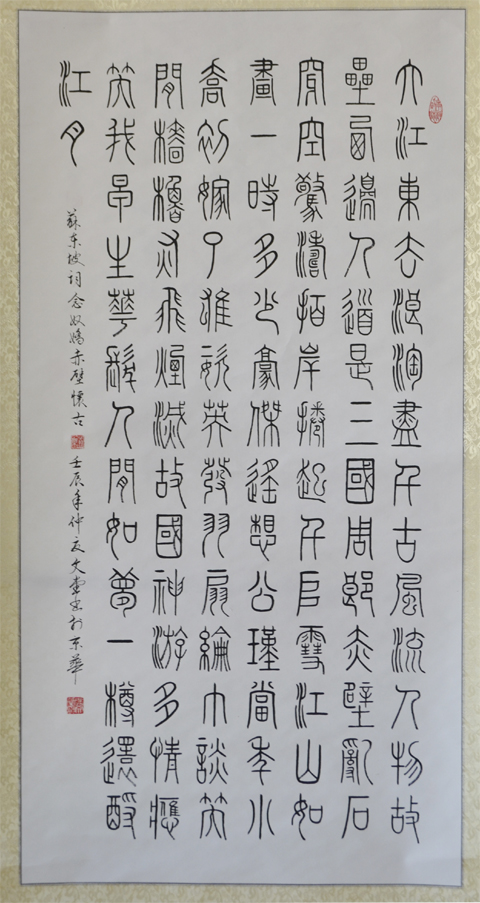 大江東去浪淘盡千古風流人物故
壘西邊人道是三國周郎赤壁亂石
穿空驚濤拍岸捲起千堆雪江山如
畫一時多少豪傑遙想公瑾當年小
喬初嫁了雄姿英發羽扇綸巾談笑
間檣櫓灰飛煙滅故國神游多情應
笑我早生華髮人間如夢一樽還酹
江月
蘇東坡詞念奴嬌赤壁懷古 壬辰年仲夏文堂書於京華